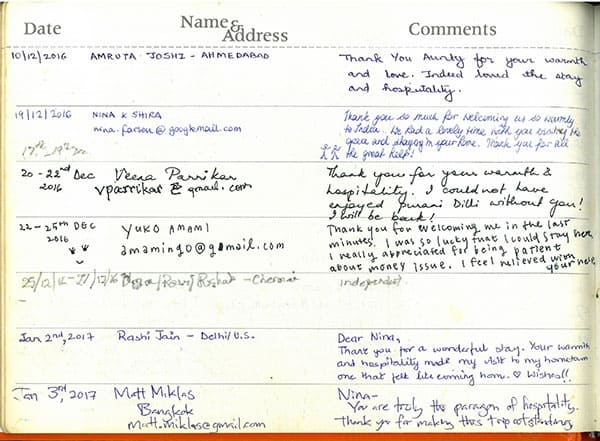 Date Name & Address Comments
10/12/2016 AMRUTA JOSHI - AHMEDABAD
Thank You Aunty for your warmth
and love. Indeed loved the stay
and hospitality.
19/12/2016 NINA K SHIRA
nina.farson@googlemail.com
17th-19th
Thank you so much for welcoming us so warmly
to India. We had a lovely time with you
and staying in your home. Thank you for all
the great help!
20 - 22nd Dec
2016
Veena Parrikar
vparrikar@gmail.com
Thank you for your warmth &
hospitality. I could not have
enjoyed purani Dilli without you!
I will be back!
22-25th DEC
2016
YUKO AMAMI
amaming0@gmail.com
Thank you for welcoming me in the last
minutes. I was so lucky that I could stay here
I really appreciated for being patient
about money issue. I feel relieved with
your
25/12/16-27/12/16 - Chennai
independent
Jan 2nd, 2017 Rashi Jain - Delhi/U.S.
Dear Nina,
Thank you for a wonderful stay. Your warmth
and hospitality made my visit to my hometown
one that felt like coming home. ♡ Wishes!!
Jan 3rd, 2017 Matt Miklas
Bangkok
Matt.miklas@gmail.com
Nina-
You are truly the paragon of hospitality.
Thank you for making this trip outstanding